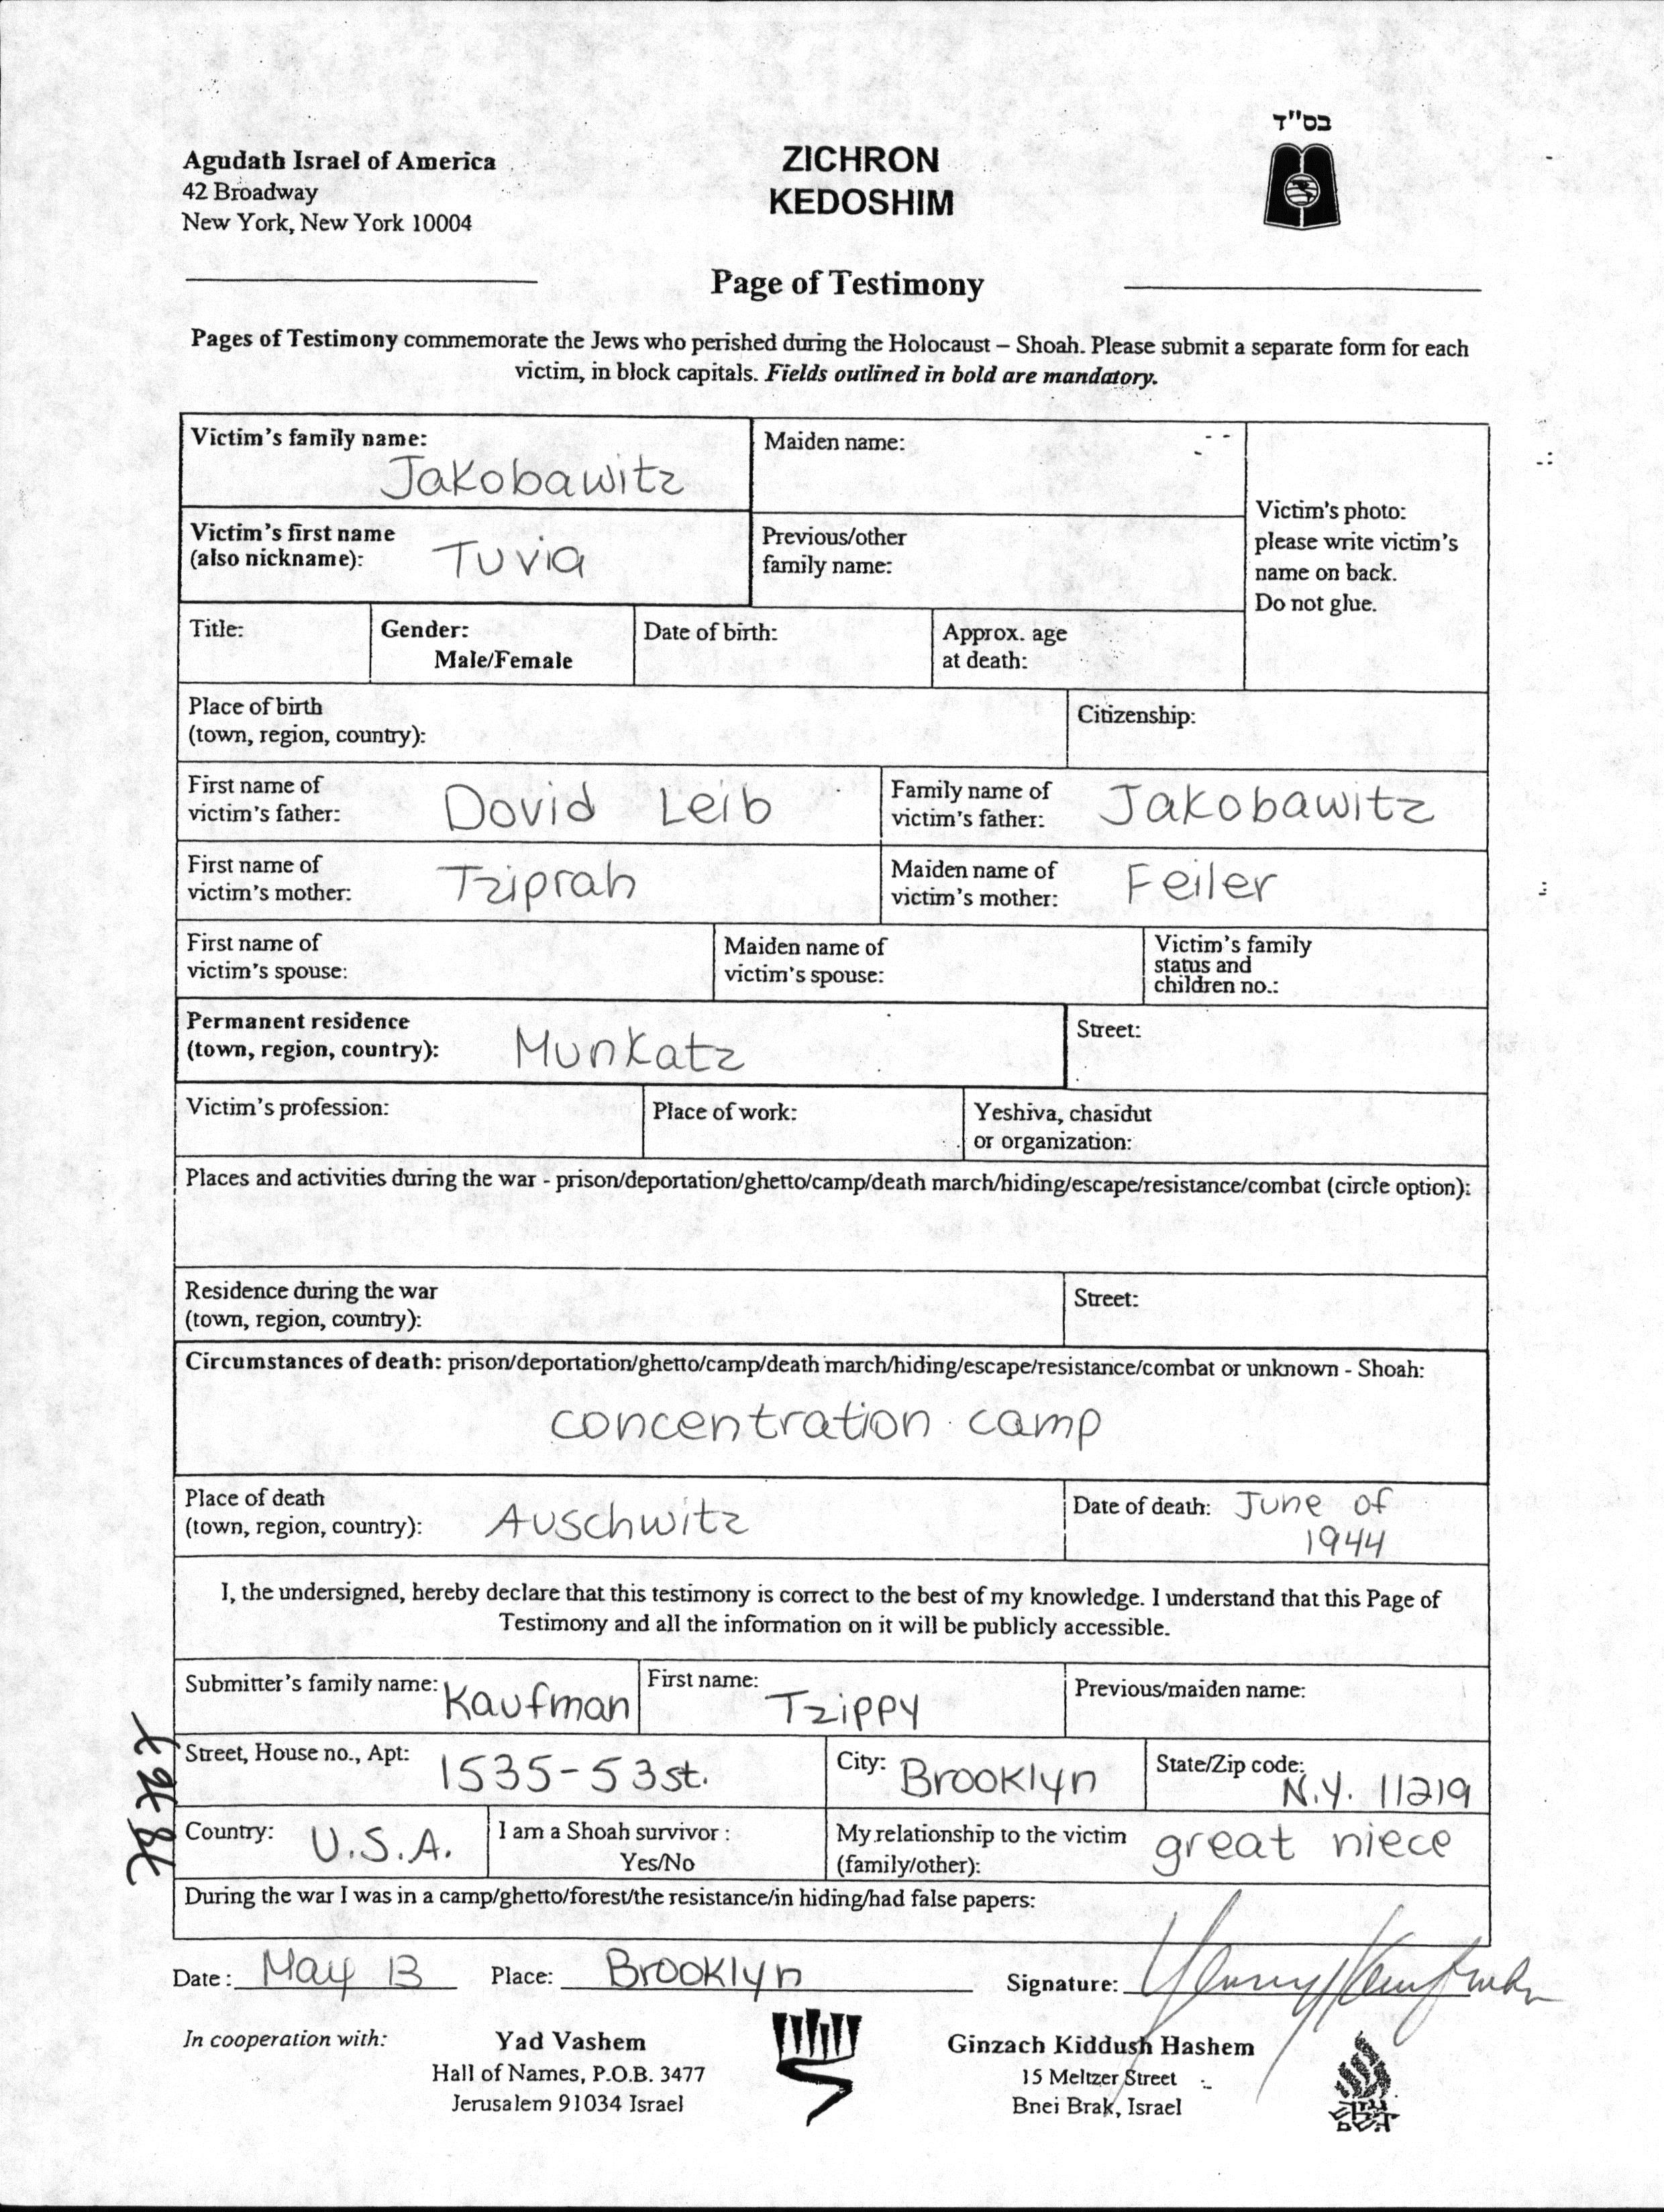 בס"ד
Agudath Israel of America
42 Broadway
New York, New York 10004
ZICHRON
KEDOSHIM
Page of Testimony
Pages of Testimony commemorate the Jews who perished during the Holocaust – Shoah. Please submit a separate form for each
victim, in block capitals. Fields outlined in bold are mandatory.
Victim's family name:
Jakobawitz
Maiden name:
Victim's photo:
please write victim's
name on back.
Do not glue.
Victim's first name
(also nickname): Tuvia
Previous/other
family name:
Title:
Gender:
Male/Female
Date of birth:
Approx. age
at death:
Place of birth
(town, region, country):
Citizenship:
First name of
victim's father: Dovid Leib
Family name of
victim's father: Jakobawitz
First name of
victim's mother: Tziprah
Maiden name of
victim's mother: Feiler
First name of
victim's spouse:
Maiden name of
victim's spouse:
Victim's family
status and
children no.:
Permanent residence
(town, region, country): Munkatz
Street:
Victim's profession:
Place of work:
Yeshiva, chasidut
or organization:
Places and activities during the war - prison/deportation/ghetto/camp/death march/hiding/escape/resistance/combat (circle option):
Residence during the war
(town, region, country):
Street:
Circumstances of death: prison/deportation/ghetto/camp/death march/hiding/escape/resistance/combat or unknown - Shoah:
concentration camp
Place of death
(town, region, country): Auschwitz
Date of death: June of
1944
I, the undersigned, hereby declare that this testimony is correct to the best of my knowledge. I understand that this Page of
Testimony and all the information on it will be publicly accessible.
Submitter's family name: Kaufman
First name: Tzippy
Previous/maiden name:
Street, House no., Apt: 1535-53st.
City: Brooklyn
State/Zip code: N.Y. 11219
Country: U.S.A.
I am a Shoah survivor :
Yes/No
My relationship to the victim
(family/other): great niece
During the war I was in a camp/ghetto/forest/the resistance/in hiding/had false papers:
Date: May 13 Place: Brooklyn Signature:
In cooperation with:
Yad Vashem
Hall of Names, P.O.B. 3477
Jerusalem 91034 Israel
Ginzach Kiddush Hashem
15 Meltzer Street
Bnei Brak, Israel